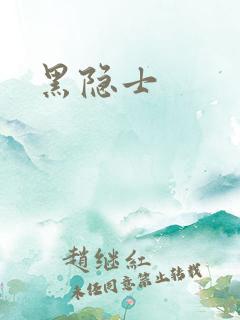 黑隐士
趙继红
未经同意禁止转载